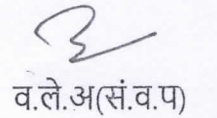 व.ले.अ(सं.व.प)